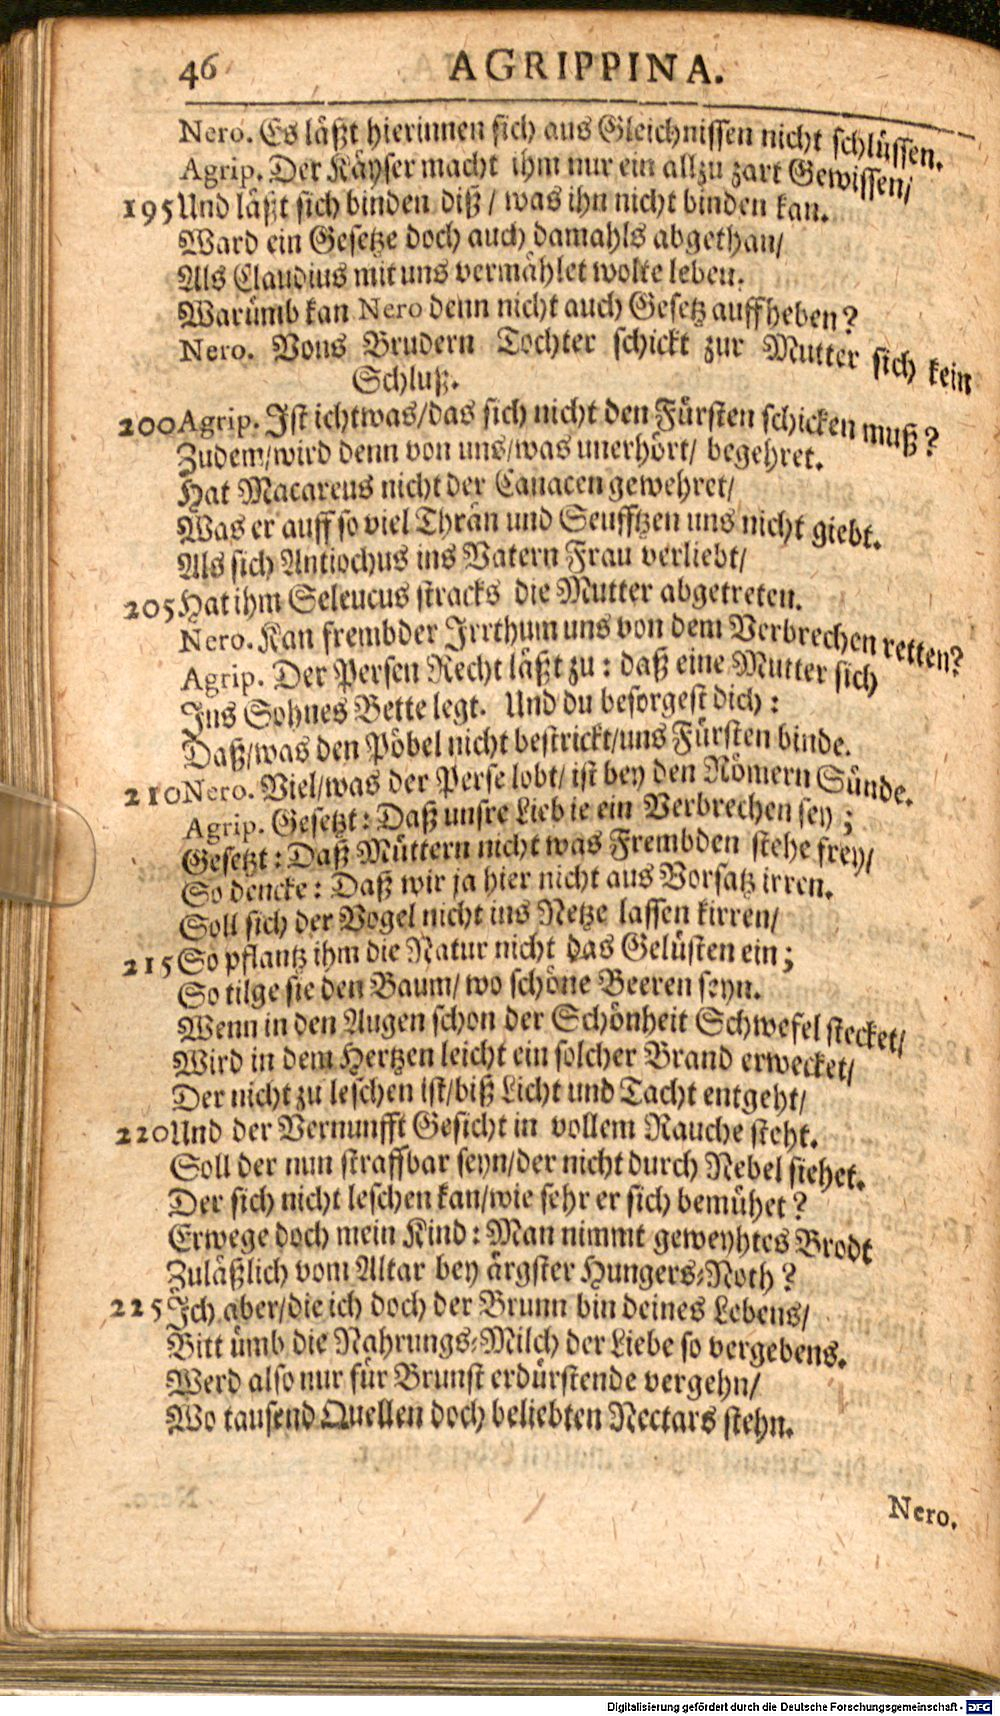 46 AGRIPPINA.
Nero. Es läßt hierinnen sich aus Gleichnissen nicht schlüssen.
Agrip. Der Käyser macht ihm nur ein allzu zart Gewissen/
195 Und läßt sich binden diß / was ihn nicht binden kan.
Ward ein Gesetze doch auch damahls abgethan/
Als Claudius mit uns vermählet wolte leben.
Warümb kan Nero denn nicht auch Gesetz auffheben?
Nero. Vons Brudern Tochter schickt zur Mutter sich kein
Schluß.
200 Agrip. Ist ichtwas/das sich nicht den Fürsten schicken muß?
Zudem/wird denn von uns/was unerhört/ begehret.
Hat Macareus nicht der Canacen gewehret/
Was er auff so viel Thrän und Seufftzen uns nicht giebt.
Als sich Antiochus ins Vatern Frau verliebt/
205 Hat ihm Seleucus stracks die Mutter abgetreten.
Nero. Kan frembder Irrthum uns von dem Verbrechen retten?
Agrip. Der Persen Recht läßt zu: daß eine Mutter sich
Ins Sohnes Bette legt. Und du besorgest dich:
Daß/was den Pöbel nicht bestrickt/uns Fürsten binde.
210 Nero. Viel/was der Perse lobt/ ist bey den Römern Sünde.
Agrip. Gesetzt: Daß unsre Lieb ie ein Verbrechen sey;
Gesetzt: Daß Müttern nicht was Frembden stehe frey/
So dencke: Daß wir ja hier nicht aus Vorsatz irren.
Soll sich der Vogel nicht ins Netze lassen kirren/
215 So pflantz ihm die Natur nicht das Gelüsten ein;
So tilge sie den Baum/ wo schöne Beeren seyn.
Wenn in den Augen schon der Schönheit Schwefel stecket/
Wird in dem Hertzen leicht ein solcher Brand erwecket/
Der nicht zu leschen ist/biß Licht und Tacht entgeht/
220 Und der Vernunfft Gesicht in vollem Rauche steht.
Soll der nun straffbar seyn/der nicht durch Nebel siehet.
Der sich nicht leschen kan/wie sehr er sich bemühet?
Erwege doch mein Kind: Man nimmt geweyhtes Brodt
Zuläßlich vom Altar bey ärgster Hungers-Noth?
225 Ich aber/die ich doch der Brunn bin deines Lebens/
Bitt ümb die Nahrungs-Milch der Liebe so vergebens.
Werd also nur für Brunst erdürstende vergehn/
Wo tausend Quellen doch beliebten Nectars stehn.
Nero.
Digitalisierung gefördert durch die Deutsche Forschungsgemeinschaft - DFG